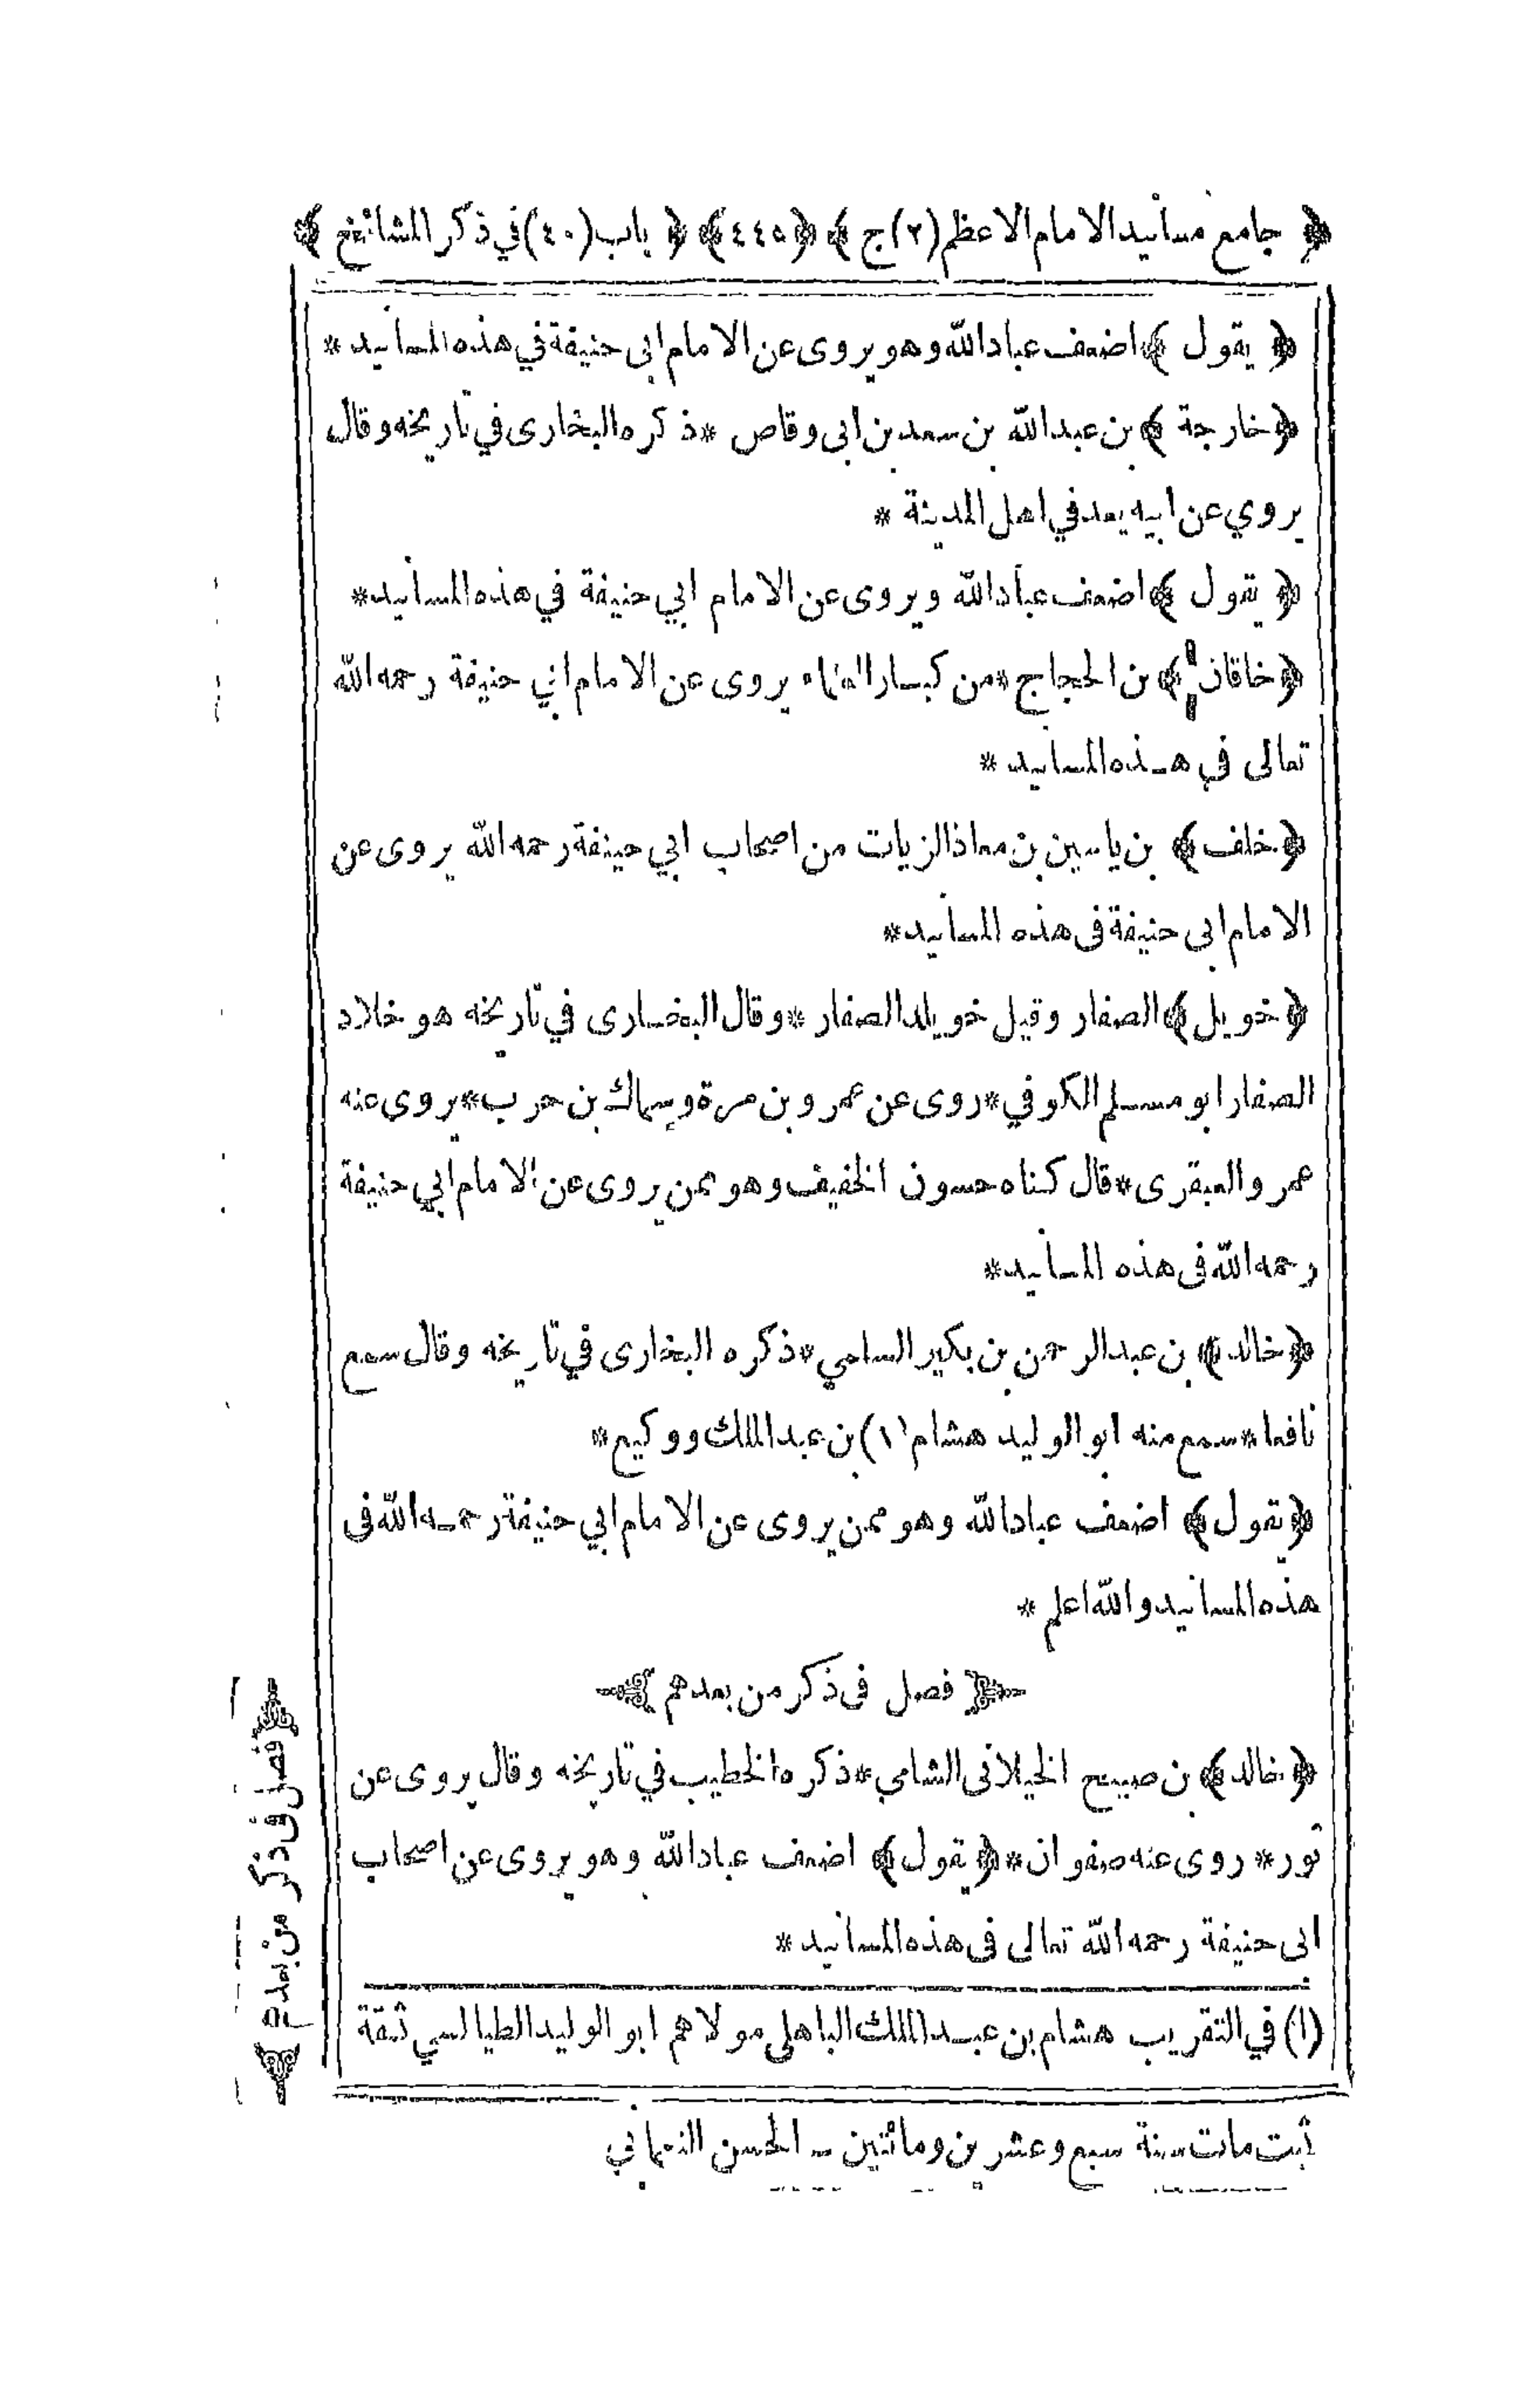 ﴿ جامع مسانيد الامام الاعظم (٢) ج ﴾ ﴿٤٤٥﴾ ﴿ باب (٤٠) في ذكر المشائخ ﴾
﴿ يقول ﴾ اضعف عباد الله وهو يروى عن الامام ابى حنيفة في هذه المسانيد *
﴿ خارجة ﴾ بن عبدالله بن سعد بن ابى وقاص * ذكره البخارى في تاريخه وقال
يروي عن ابيه يعد في اهل المدينة *
﴿ يقول ﴾ اضعف عباد الله ويروى عن الامام ابي حنيفة في هذه المسانيد *
﴿ خاقان ﴾ بن الحجاج * من كبار العلماء يروى عن الامام ابي حنيفة رحمه الله
تعالى في هذه المسانيد *
﴿ خلف ﴾ بن ياسين بن معاذ الزيات من اصحاب ابي حنيفة رحمه الله يروى عن
الامام ابى حنيفة فى هذه المسانيد *
﴿ خويل ﴾ الصفار وقيل خويلد الصفار * وقال البخارى في تاريخه هو خلاد
الصفار ابو مسلم الكوفي * روى عن عمرو بن مرة وسماك بن حرب * يروى عنه
عمرو العبقرى * قال كناه حسون الخفيف وهو ممن يروى عن الامام ابي حنيفة
رحمه الله فى هذه المسانيد *
﴿ خالد ﴾ بن عبدالرحمن بن بكير السلمي * ذكره البخارى في تاريخه وقال سمع
نافعا * سمع منه ابو الوليد هشام (١) بن عبدالملك ووكيع *
﴿ يقول ﴾ اضعف عباد الله وهو ممن يروى عن الامام ابي حنيفة رحمه الله فى
هذه المسانيد والله اعلم *
﴿ فصل فى ذكر من بعدهم ﴾
﴿ خالد ﴾ بن صبيح الخيلانى الشامي * ذكره الخطيب في تاريخه وقال يروى عن
ثور * روى عنه صفوان * ﴿ يقول ﴾ اضعف عباد الله وهو يروى عن اصحاب
ابى حنيفة رحمه الله تعالى فى هذه المسانيد *
﴿ فصل في ذكر من بعدهم ﴾
(١) في التقريب هشام بن عبدالملك الباهلى مولاهم ابو الوليد الطيالسي ثقة
ثبت مات سنة سبع وعشرين ومائتين - الحسن النعماني